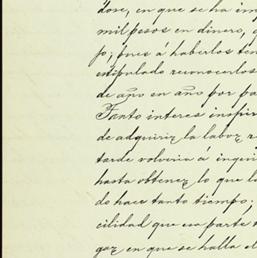 dose, en que se ha im
mil pesos en dinero,
jo, pues á haberlos ten
estipulado reconocerlos
de año en año por pa
Tanto interes inspir
de adquirir la labor
tarde volveria á ingeni
hasta obtener lo que la
do hace tanto tiempo:
cilidad que en parte
gar en que se halla el